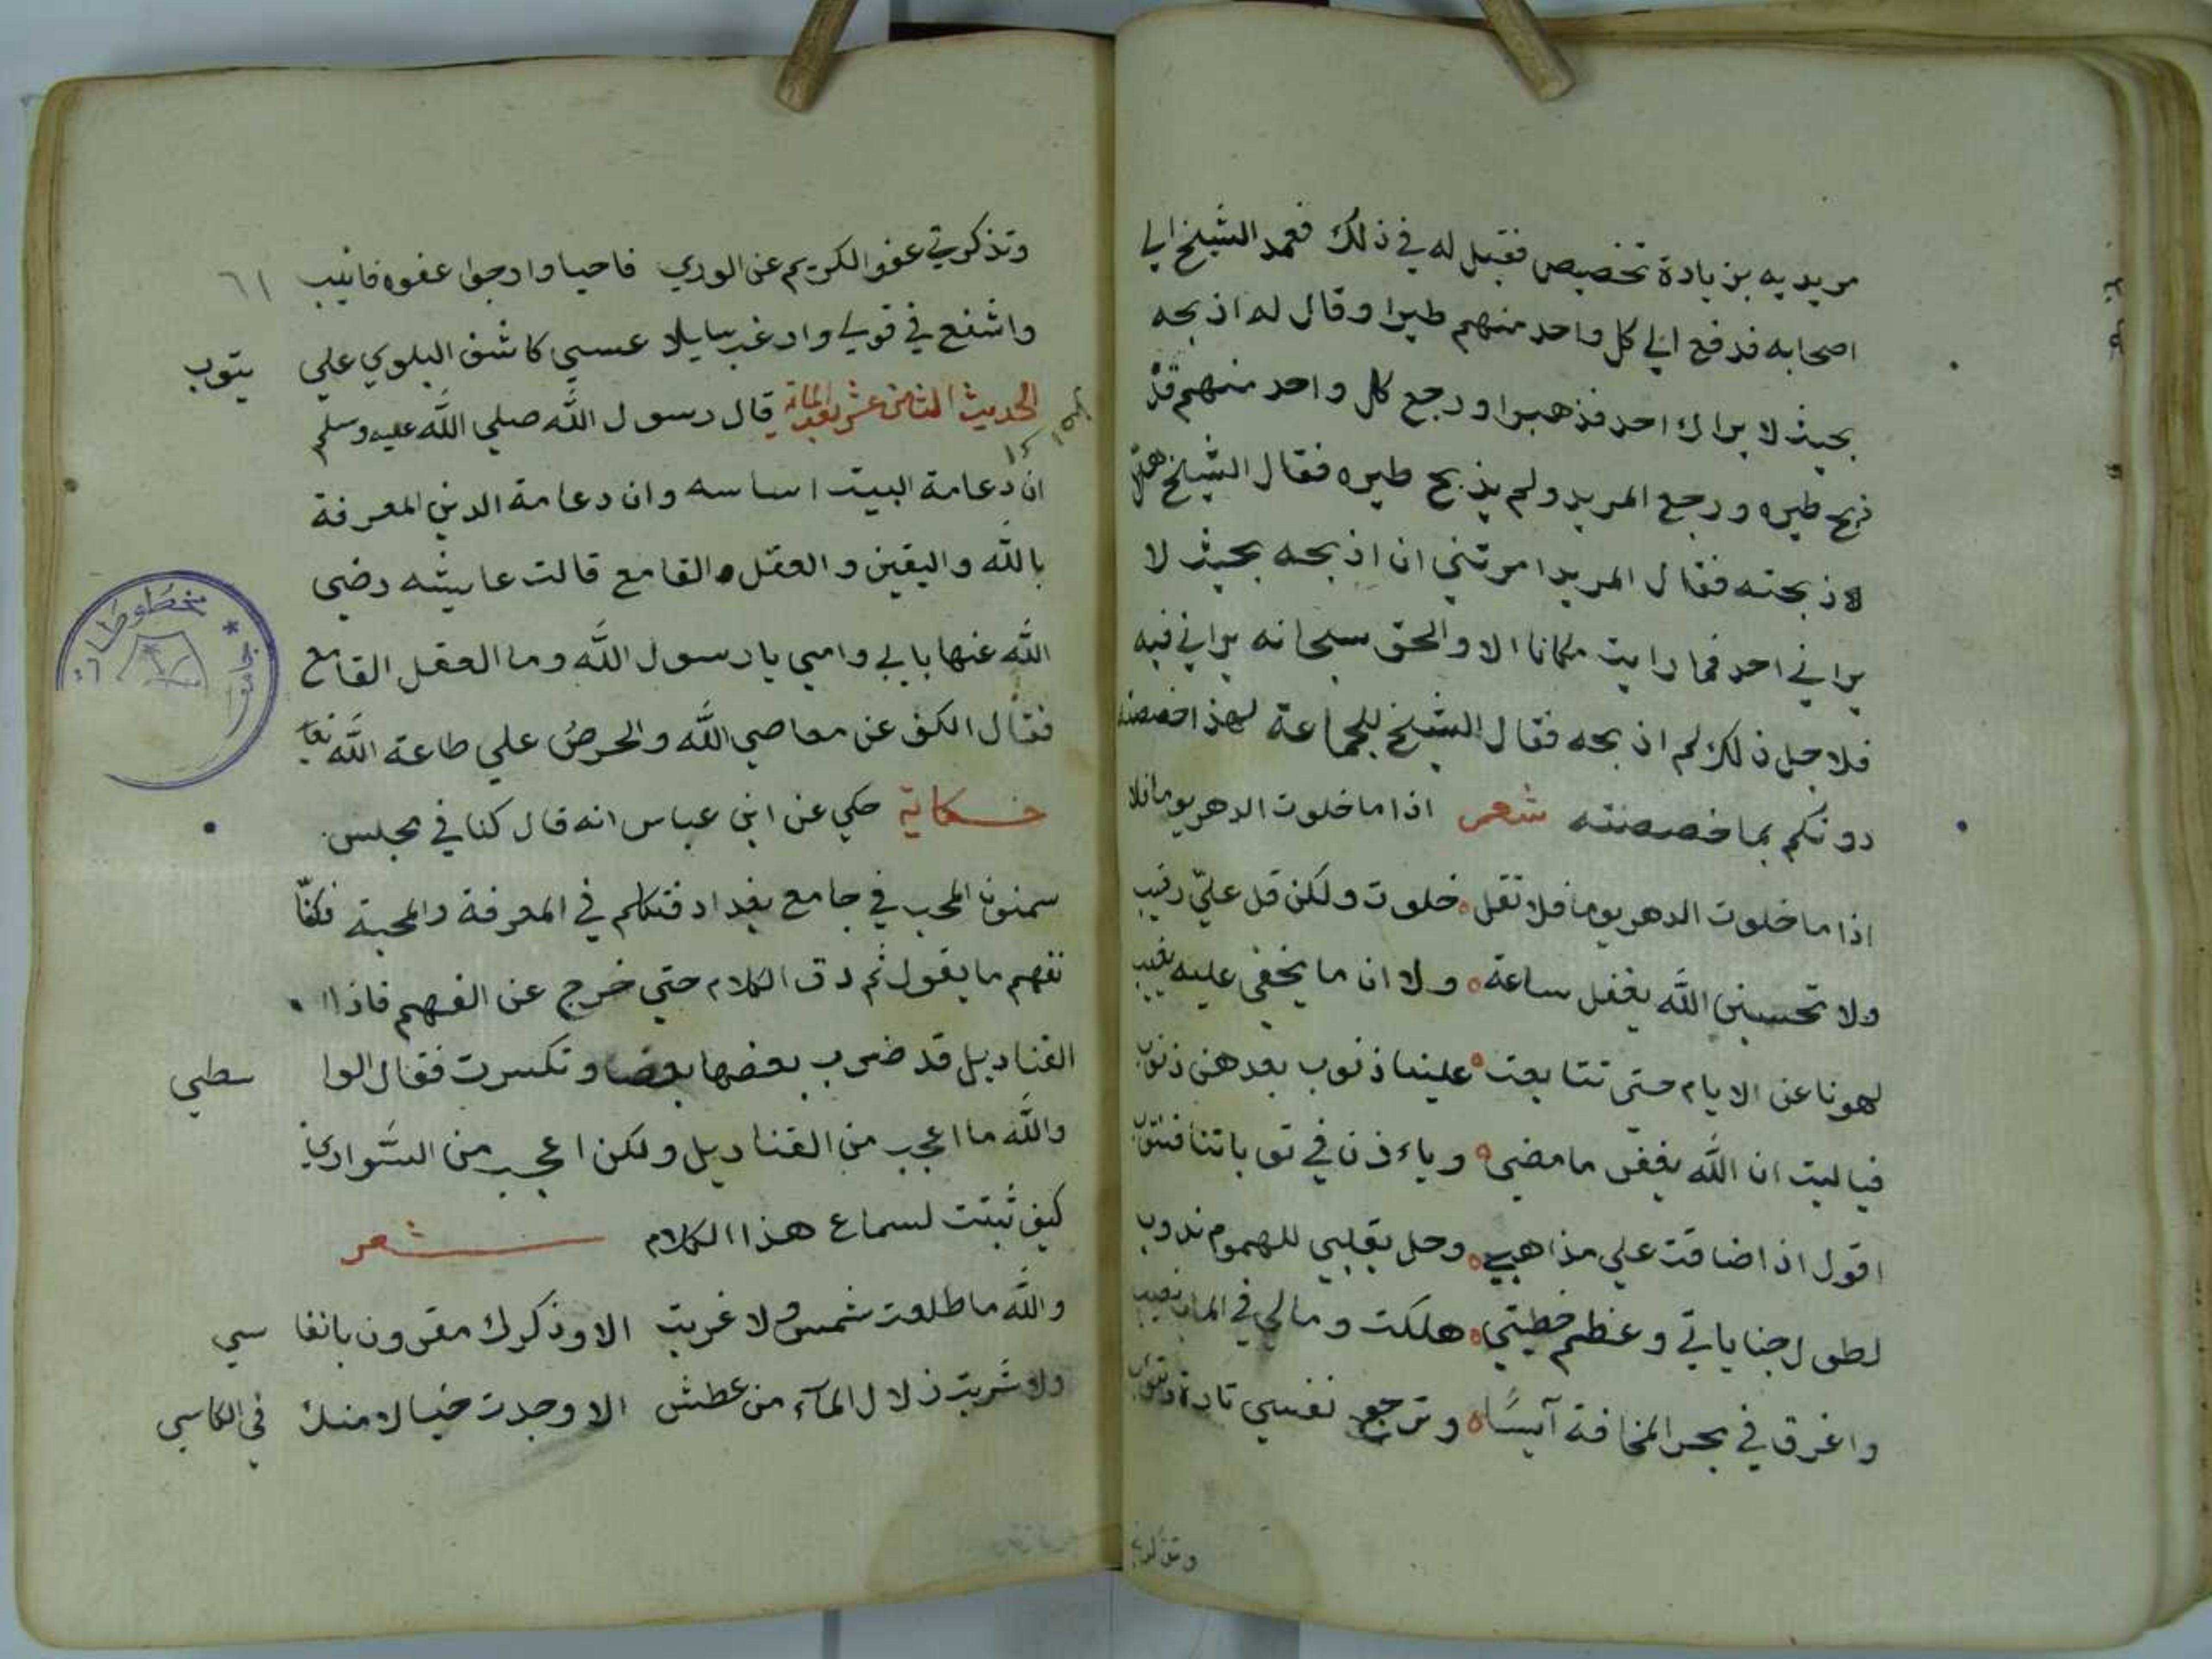 مريديه بزيادة تخصيص فقيل له في ذلك فعمد الشيخ الي
اصحابه فدفع الي كل واحد منهم طيرا وقال له اذبحه
بحيث لا يراك احد فذهبوا ورجع كل واحد منهم قد
ذبح طيره ورجع المريد ولم يذبح طيره فقال الشيخ هل
لا ذبحته فقال المريد امرتني ان اذبحه بحيث لا
يراني احد فما رايت مكانا الا والحق سبحانه يراني فيه
فلاجل ذلك لم اذبحه فقال الشيخ للجماعة لهذا خصصته
دونكم بما خصصته شعر اذا ما خلوت الدهر يوما فلا
اذا ما خلوت الدهر يوما فلا تقل خلوت ولكن قل عليّ رقيب
ولا تحسبن الله يغفل ساعة ولا ان ما يخفي عليه يغيب
لهونا عن الايام حتي تتابعت علينا ذنوب بعدهن ذنوب
فياليت ان الله يغفر ما مضي وياءذن في توباتنا فنتوب
اقول اذا ضاقت علي مذاهبي وحل بقلبي للهموم ندوب
لطول جناياتي وعظم خطيتي هلكت ومالي في المتاب نصيب
واغرق في بحر المخافة آيسًا وترجع نفسي تارة وتتوب
وتذكرني
وتذكرني عفو الكريم عن الوري فاحيا وارجوا عفوه فانيب ٦١
واشفع في قولي وارغب سايلا عسي كاشف البلوي علي يتوب
الحديث الثامن عشر بعد المائة قال رسول الله صلي الله عليه وسلم
ان دعامة البيت اساسه وان دعامة الدين المعرفة
بالله واليقين والعقل القامع قالت عايشه رضي
الله عنها بابي وامي يا رسول الله وما العقل القامع
فقال الكف عن معاصي الله والحرص علي طاعة الله تعا
حكاية حكي عن ابن عباس انه قال كنا في مجلس
سمنون المحب في جامع بغداد فتكلم في المعرفة والمحبة فكنّا
نفهم ما يقول ثم دق الكلام حتي خرج عن الفهم فاذا ا
القناديل قد ضرب بعضها بعضا وتكسرت فقال الوا سطي
والله ما اعجب من القناديل ولكن اعجب من السّواري
كيف ثبتت لسماع هذا الكلام شعر
والله ما طلعت شمس ولا غربت الا وذكرك مقرون بانفا سي
ولا شربت زلال المآء من عطش الا وجدت خيالا منك في الكاسي
مخطوطات
جامعة